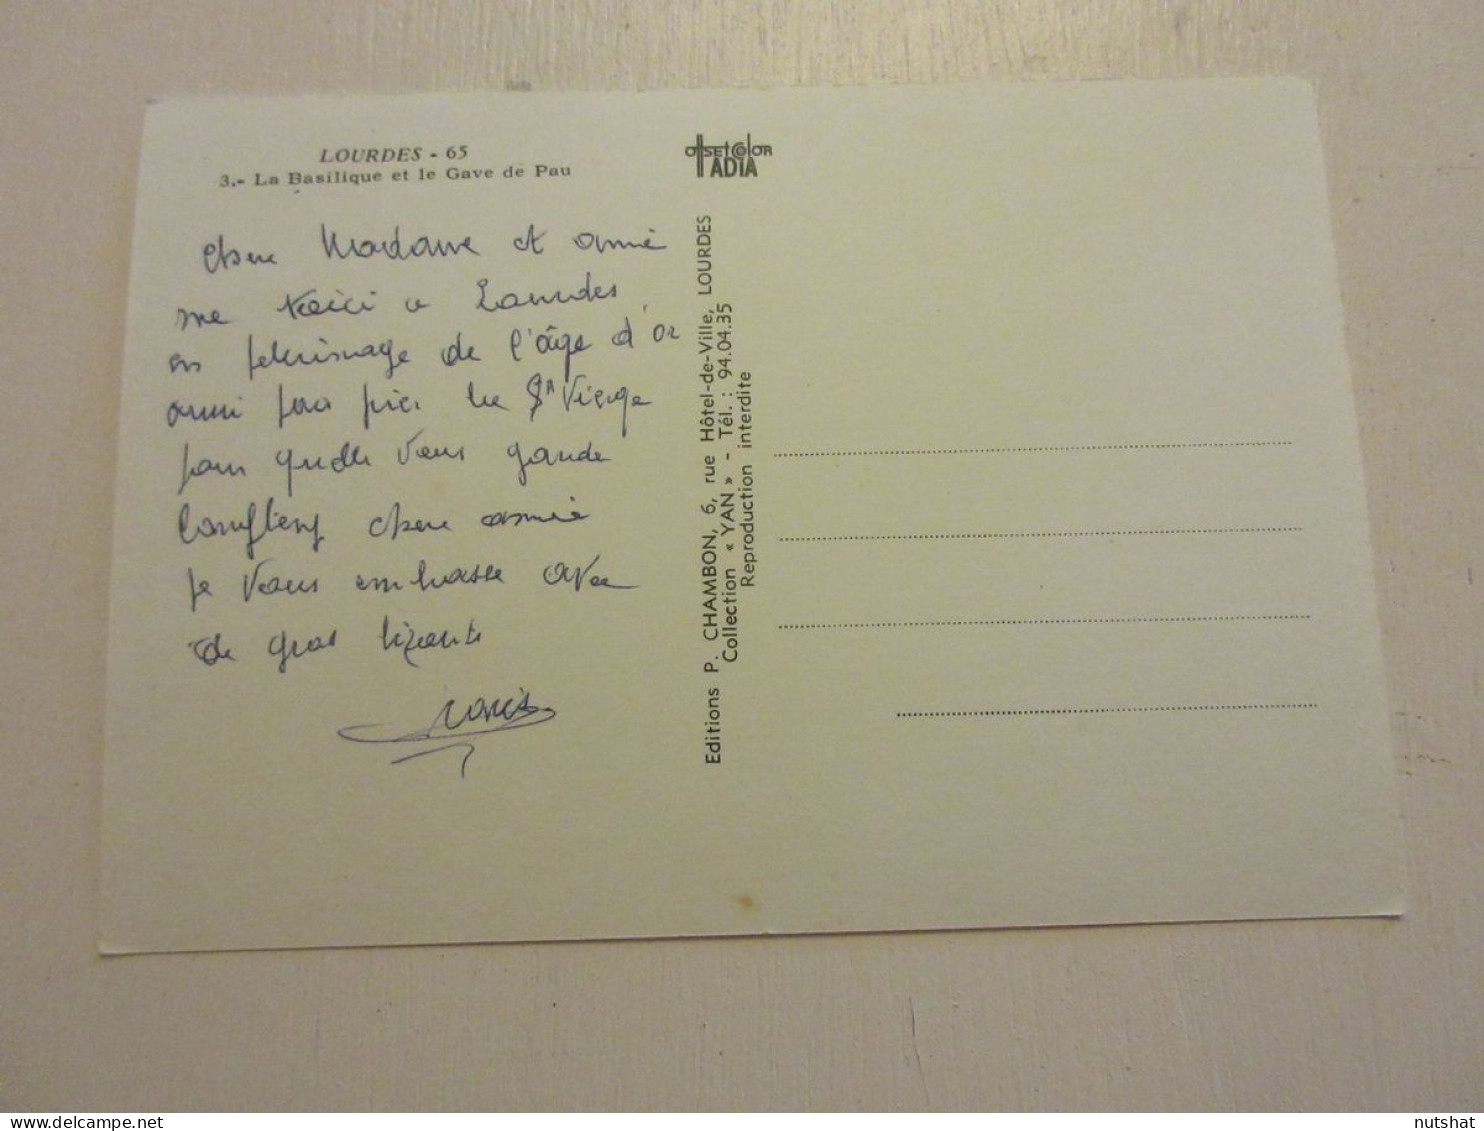 LOURDES - 65
3.- La Basilique et le Gave de Pau
chere Madame et amie
me voici a Lourdes
en pelerinage de l'âge d'or
pour prier la Vierge
pour quelle vous garde
longtemps chere amie
je vous embrasse avec
de gros
OffsetColor
IADIA
Editions P. CHAMBON, 6, rue Hôtel-de-Ville, LOURDES
Collection « YAN » - Tél. : 94.04.35
Reproduction interdite
delcampe.net
nutshat